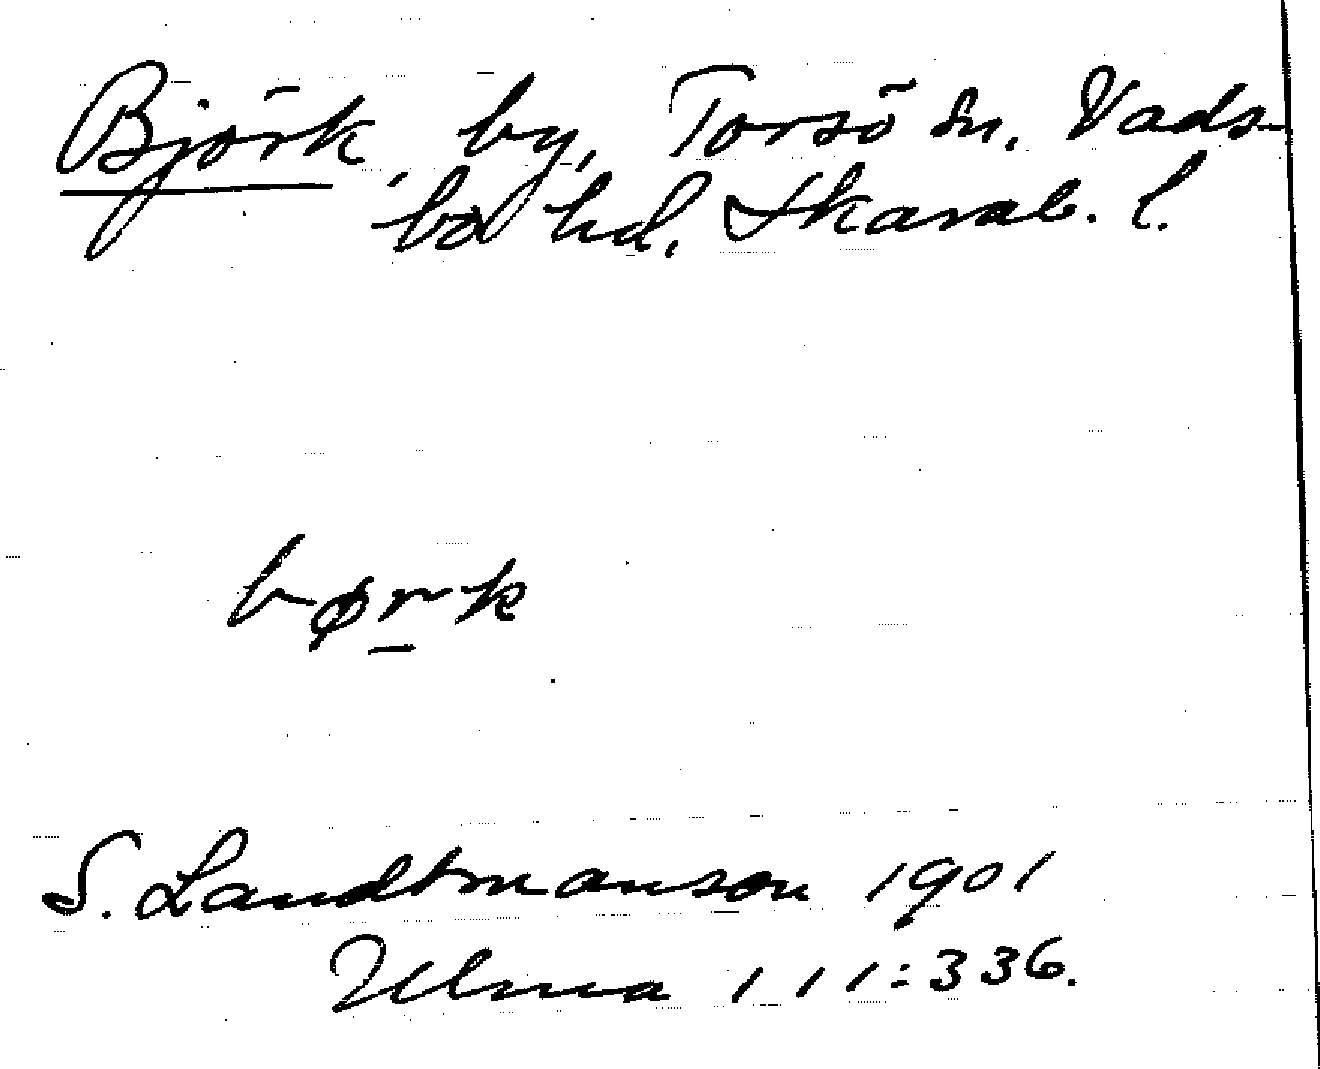 Björk, by, Torsö sn. Vads-
bo hd. Skarab. l.
børk
S. Landtmanson 1901
Ulma 111:336.